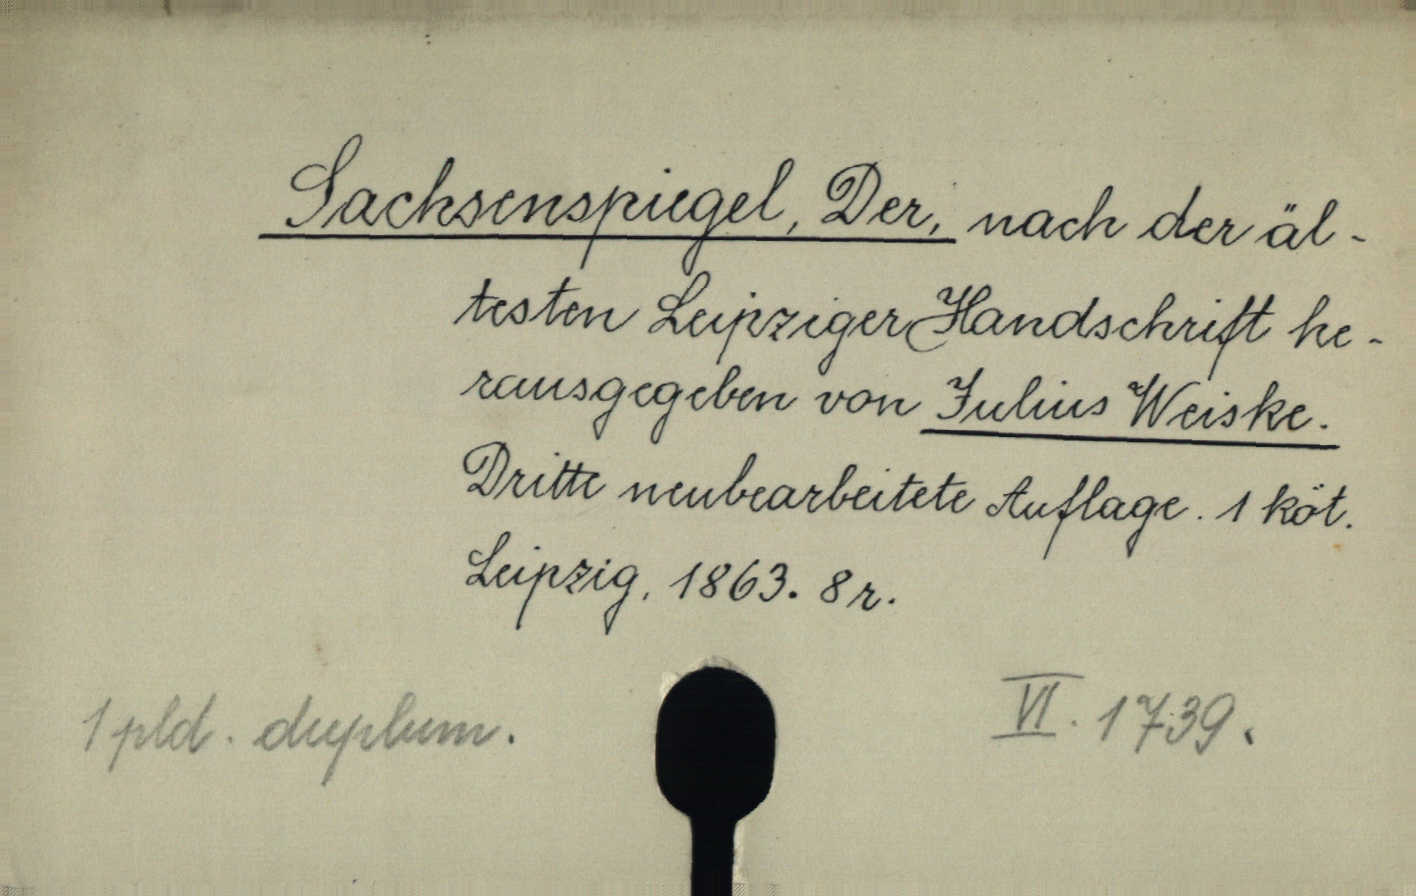 Sachsenspiegel, Der, nach der äl-
testen Leipziger Handschrift he-
rausgegeben von Julius Weiske.
Dritte neubearbeitete Auflage. 1 köt.
Leipzig, 1863. 8r.
1 pld. duplum.
VI. 1739.